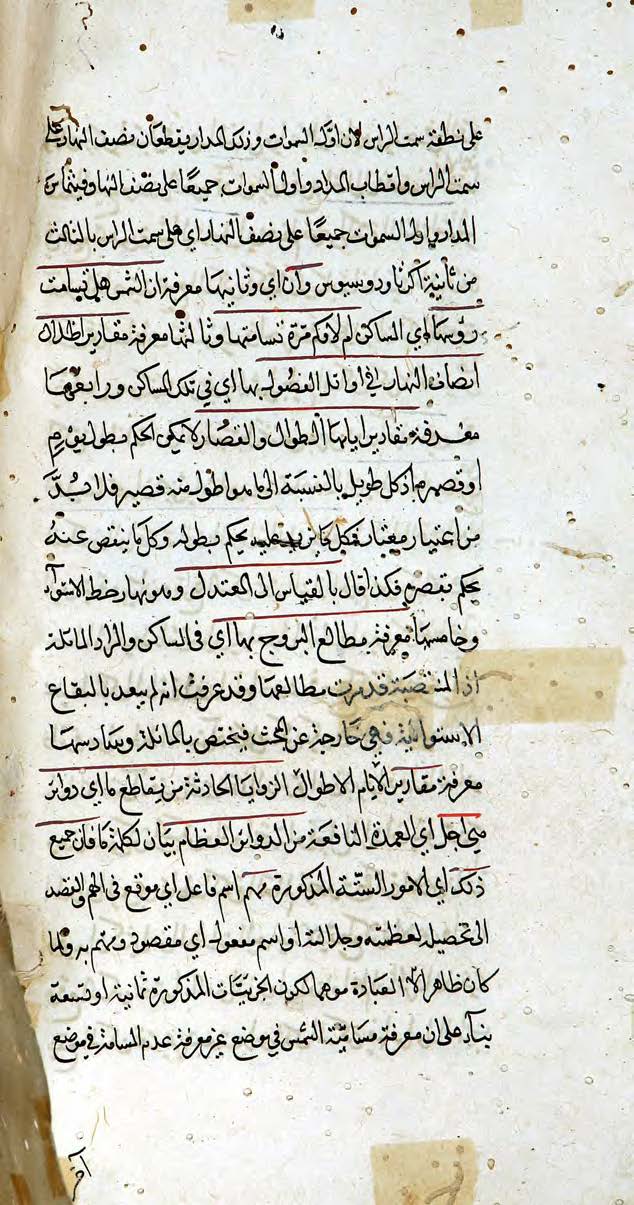 على نقطة سمت الراس لان اول السموات وذلك المدار يقطعان نصف النهار على
سمت الراس واقطاب المدار واول السموات جميعا على نصف النهار
المدار واول السموات جميعا على نصف النهار اي على سمت الراس بالثالث
من ثانية اكرثاودوسيوس وان اي وثانيها معرفة ان الشمس هل تسامت
رؤسها اي المساكن ام لا وكم مرة تسامتها وثالثها معرفة مقادير اظلال
انصاف النهار في اوائل الفصول بها اي في تلك المساكن ورابعها
معرفة مقادير ايامها الطوال والقصار لا يمكن الحكم بطول يوم
او قصره اذ كل طويل بالنسبة الى ما هو اطول منه قصير فلا بد
من اعتبار معيار فكل ما يزيد عليه يحكم بطوله وكل ما ينقص عنه
يحكم بقصره فلذا قال بالقياس الى المعتدل وهو نهار خط الاستواء
وخامسها معرفة مطالع البروج بها اي في المساكن والمراد المائلة
اذ المنتصبة قد مرت مطالعها وقد عرفت انه لم يبعد بالبقاع
الاستوائية فهي خارجة عن البحث فيختص بالمائلة وسادسها
معرفة مقادير الايام الاطوال الزوايا الحادثة من تقاطع اي دوائر
من اجل اي العمدة النافعة من الدوائر العظام بيان لكلمة ما فان جميع
ذلك اي الامور الستة المذكورة مهم اسم فاعل اي موقع في الهم والقصد
الى تحصيله لعظمته وجلالته او اسم مفعول اي مقصود ومهتم به ولما
كان ظاهر العبادة موهما لكون الجزئيات المذكورة ثمانية او تسعة
بناء على ان معرفة مسامتة الشمس في موضع غير معرفة عدم المسامتة في موضع
آخر